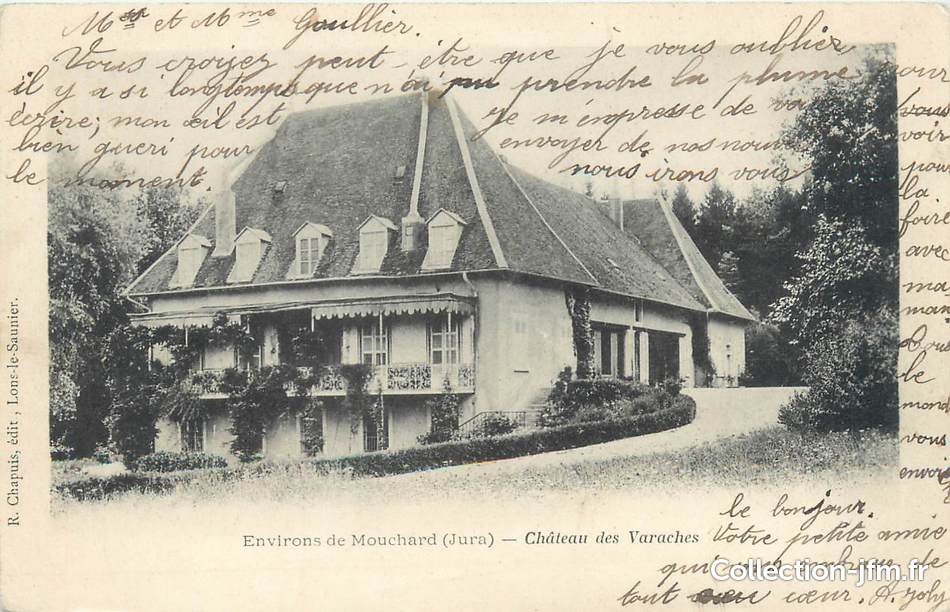 Mr et Mme Goullier.
Vous croyez peut-être que je vous oublie
il y a si longtemps que n'ai pu prendre la plume pour
écrire; mon œil est je m'empresse de vous
bien guéri pour envoyer de nos nouv
le moment. nous irons vous
voir
pour
la
foire
avec
ma
man
le
mond
vous
envoie
le bonjour.
Votre petite amie
qui vous embrasse de
tout cœur. A. Joly
R. Chapuis, édit, Lons-le-Saunier.
Environs de Mouchard (Jura) — Château des Varaches
Collection-jfm.fr